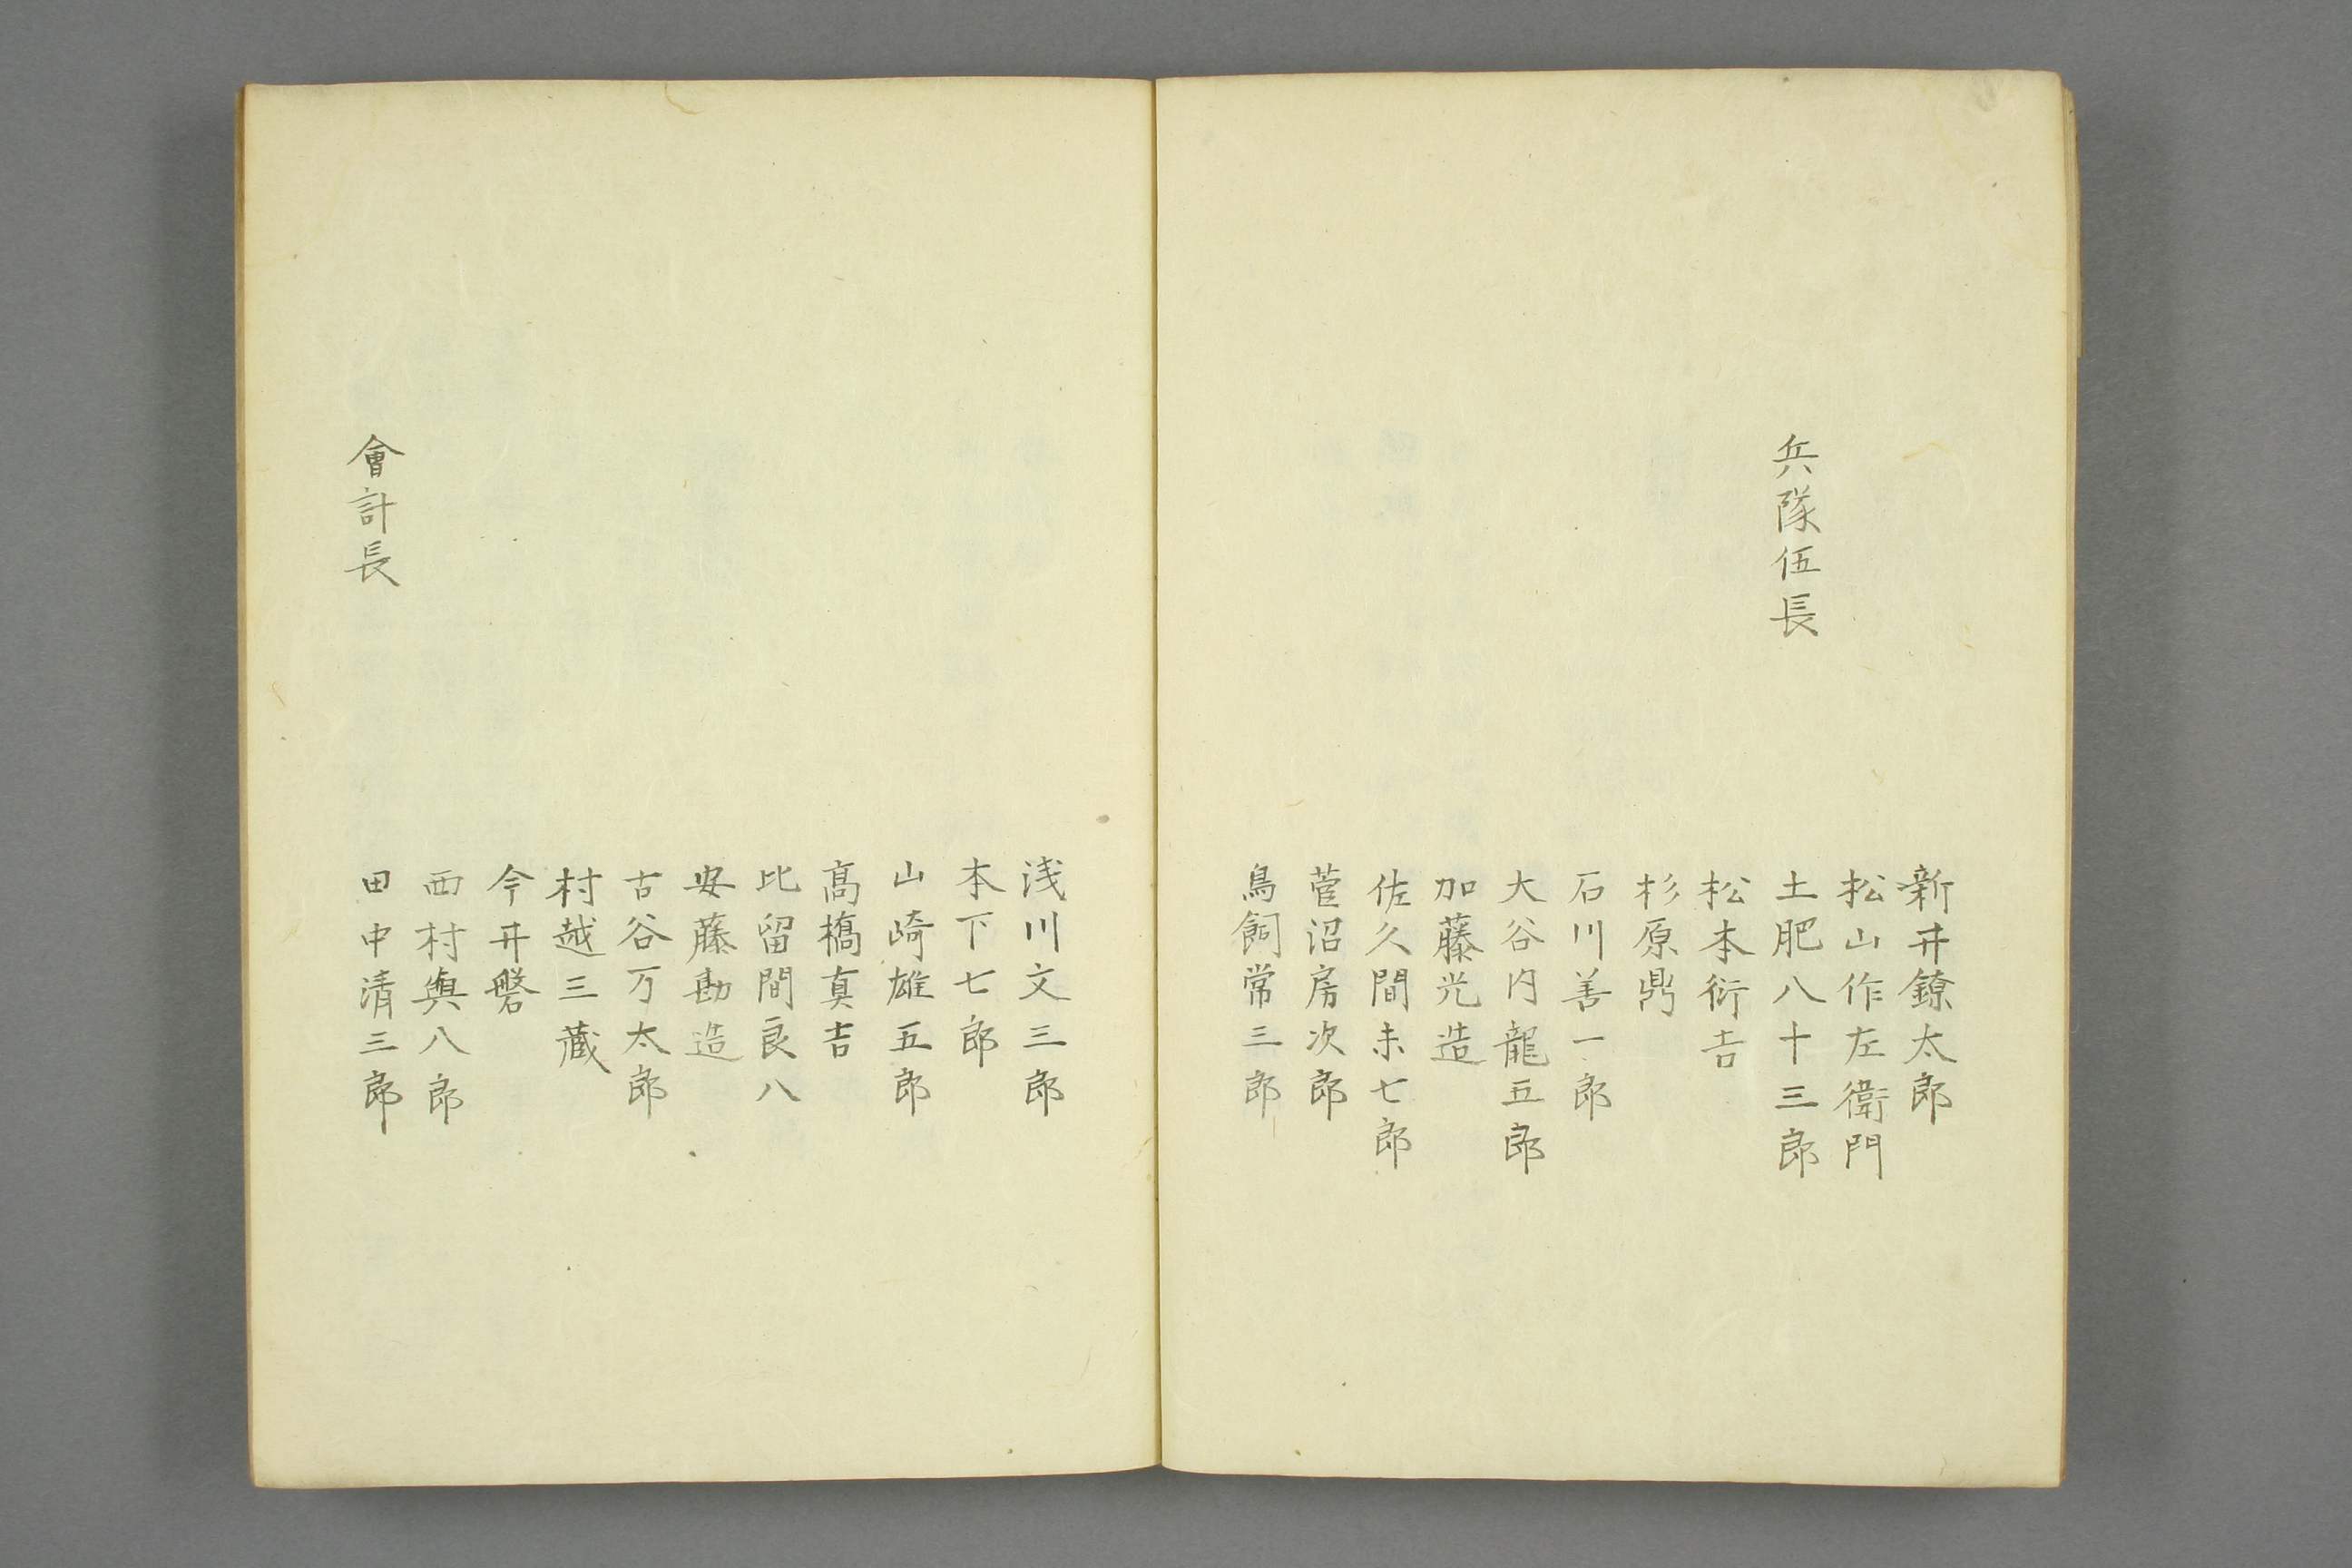 新井鐐太郎
松山作左衛門
兵隊伍長
土肥八十三郎
松本衍吉
杉原鼎
石川善一郎
大谷内龍五郎
加藤光造
佐久間未七郎
菅沼房次郎
鳥飼常三郎
浅川文三郎
本下七郎
山崎雄五郎
髙橋真吉
比留間良八
安藤勘造
古谷万太郎
村越三藏
今井磐
西村與八郎
會計長
田中清三郎